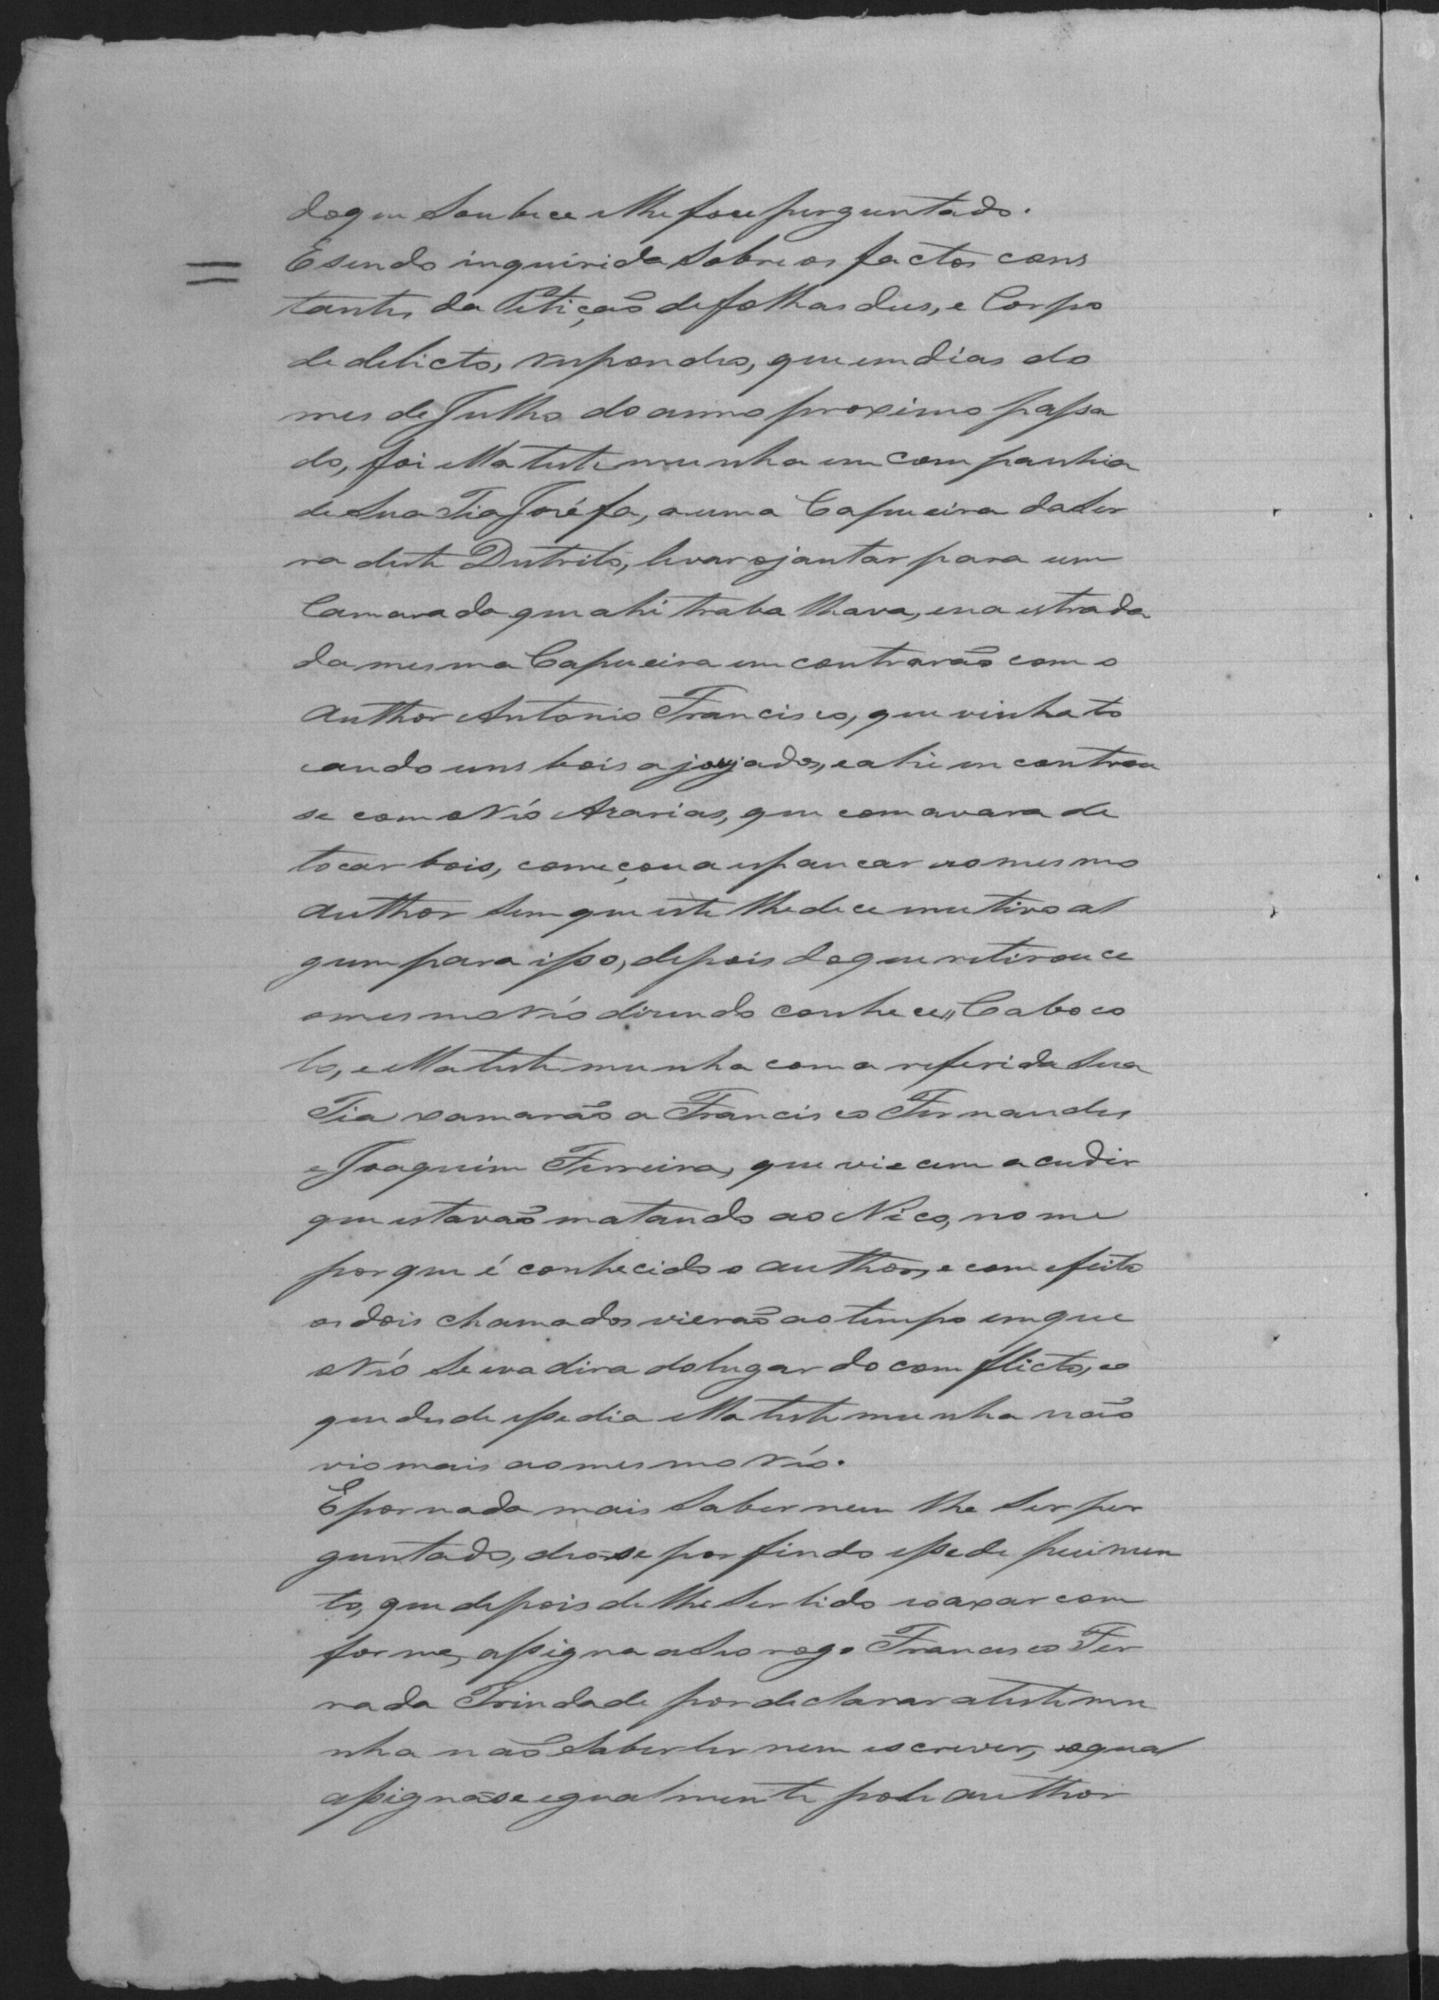 do que soubece e lhe foce perguntado.
E sendo inquirida sobre os factos cons
tantes da Petição de folhas dues, e Corpo
de delicto, respondeo, que em dias do
mes de Julho do anno proximo passa
do, foi ella testemunha em companhia
de sua Tia Joséfa, a uma Capueira da Ser
ra deste Destrito, levar o jantar para um
Camarada que ahi trabalhava, e na estrada
da mesma Capueira emcontrarão com o
Author Antonio Francisco, que vinha to
cando uns bois ajoujados, e ahi emcontrou
se com o Nió Azarias, que com a vara de
tocar bois, começou a espancar ao mesmo
Author sem que este lhe dece mutivo al
gum para isso, depois do que retirouce
o mesmo Nió dizendo conhece, Caboco
lo, e ella testemunha com a referida sua
Tia xamarão a Francisco Fernandes
e Joaquim Ferreira, que viecem acudir
que estavão matando ao Nico, nome
por que é conhecido o author, e com efeito
os dois chamados vierão ao tempo em que
o Nió se evadira do lugar do comflicto, e
que desde esse dia ella testemunha não
vio mais ao mesmo Nió.
E por nada mais saber nem lhe ser per
guntado, deo-se por findo esse depuimen
to, que depois de lhe ser lido e o axar com
forme, assigna a seo rogo Francisco Fer
ra da Trindade por declarar a testemu
nha não saber ler nem escrever, o qual
assigna-se egualmente pelo author